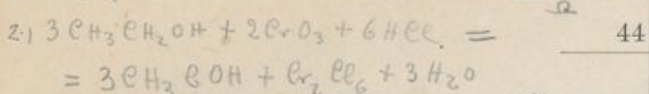 2.) 3CH₃CH₂OH + 2CrO₃ + 6HCl =
44
= 3CH₃COH + Cr₂Cl₆ + 3H₂O